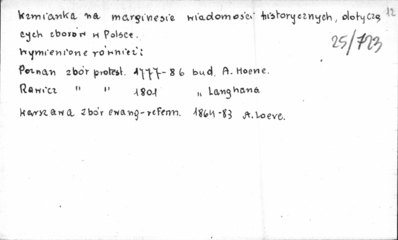 wzmianka na marginesie wiadomości historycznych, dotyczą 12
cych zborów w Polsce.
wymienione również: 25/723
Poznań zbór protest. 1777-86 bud. A. Hoene.
Rawicz " " 1801 " Langhans
Warszawa zbór ewang-reform. 1864-83 A. Loeve.